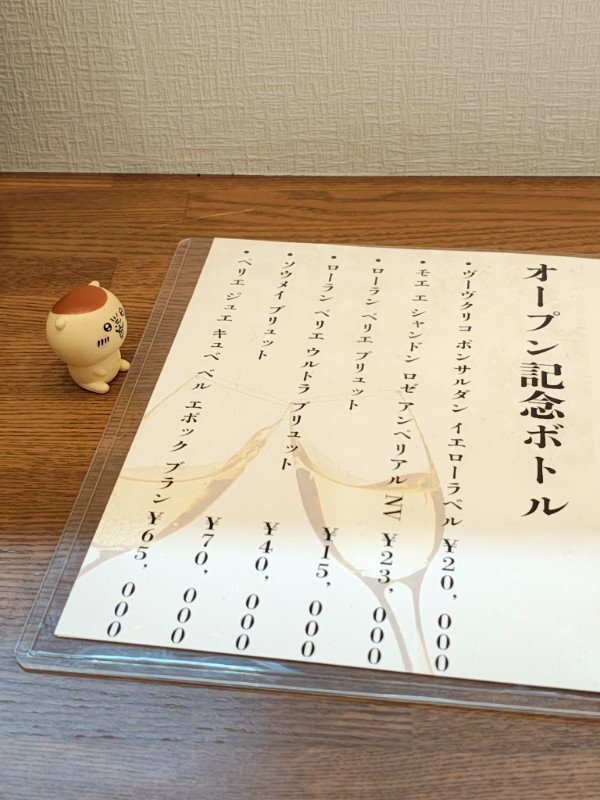 オープン記念ボトル
・ヴーヴクリコ ポンサルダン イエローラベル ¥20,000
・モエ エ シャンドン ロゼ アンペリアル NV ¥23,000
・ローラン ペリエ ブリュット ¥15,000
・ローラン ペリエ ウルトラ ブリュット ¥40,000
・ソウメイ ブリュット ¥70,000
・ペリエ ジュエ キュベ ベル エポック ブラン ¥65,000